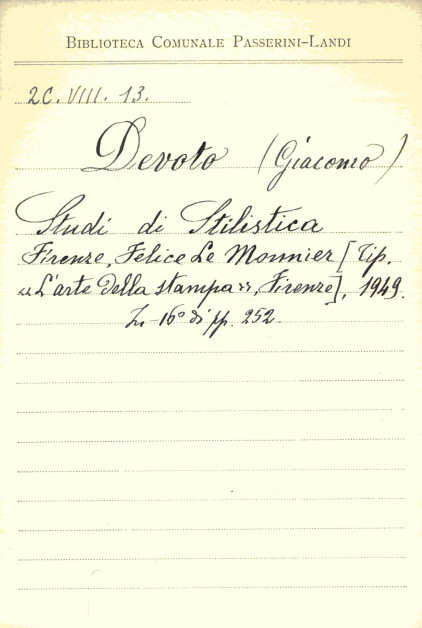 BIBLIOTECA COMUNALE PASSERINI-LANDI
2C. VIII. 13.
Devoto (Giacomo)
Studi di Stilistica
Firenze, Felice Le Monnier [Tip.
«L'arte della stampa», Firenze], 1949.
In-16° di pp. 252.